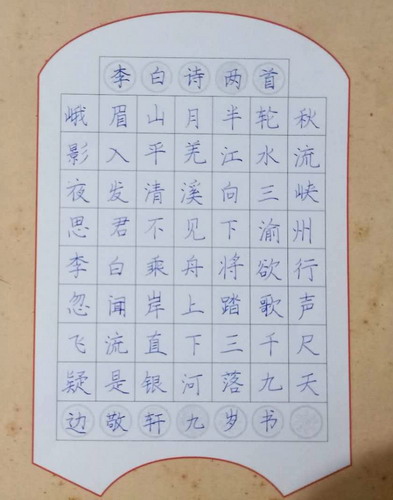 李白诗两首
峨眉山月半轮秋
影入平羌江水流
夜发清溪向三峡
思君不见下渝州
李白乘舟将欲行
忽闻岸上踏歌声
飞流直下三千尺
疑是银河落九天
边敬轩九岁书